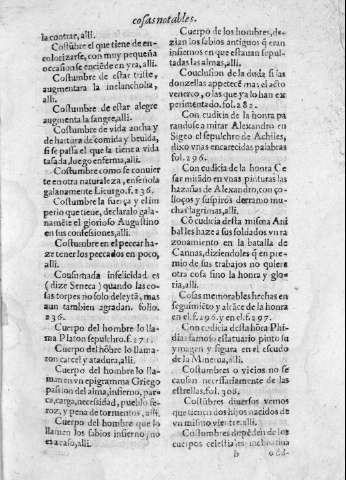 cosas notables.
la contrar, alli.
Costũbre el que tiene de en-
colorizarse, con muy pequeña
occasion se enciẽde en yra, alli.
Costumbre de estar triste,
augmentara la melancholia,
alli.
Costumbre de estar alegre
augmenta la sangre, alli.
Costumbre de vida ancha y
de hartura de comida y beuida,
si se passa el que la tiene a vida
tasada, luego enferma, alli.
Costumbre como se conuier
te en otra naturaleza, enseñola
galanamente Licurgo. f. 236.
Costumbre la fuerça y el im
perio que tiene, declaralo gala-
namẽte el glorioso Augustino
en sus confessiones, alli.
Costumbre en el peccar ha-
ze tener los peccados en poco,
alli.
Consumada infelicidad es
(dize Seneca) quando las co-
sas torpes no solo deleytã, mas
aun tambien agradan. folio.
236.
Cuerpo del hombre lo lla-
ma Platon sepulchro. f. 271.
Cuerpo del hõbre lo llama-
ron carcel y atadura, alli.
Cuerpo del hombre lo lla-
man en vn epigramma Griego
passion del alma, infierno, par-
ca, carga, necessidad, pueblo fe-
roz, y pena de tormentos, alli.
Cuerpo del hombre que lo
llamen los sabios infierno, no
es acaso, alli.
Cuerpo de los hombres, de-
zian los sabios antiguos q̃ eran
infiernos en que estauan sepul-
tadas las almas, alli.
Conclusion de la duda si las
donzellas appetecẽ mas el acto
venereo, o las que ya lo han ex
perimentado. fol. 282.
Con cudicia de la honra pa
randose a mirar Alexandro en
Sigeo el sepulchro de Achiles,
dixo vnas encarecidas palabras
fol. 296.
Con cudicia de la honra Ce
sar mirãdo en vnas pinturas las
hazañas de Alexandro, con ço-
lloços y suspiros derramo mu-
chas lagrimas, alli.
Cõ cudicia desta misma Ani
bal les haze a sus soldados vn ra
zonamiento en la batalla de
Cannas, diziendoles q̃ en pre-
mio de sus trabajos no quiere
otra cosa sino la honra y glo-
ria, alli.
Cosas memorables hechas en
seguimiẽto y alcãce de la honra
en el f. 296. y en el f. 297.
Con cudicia desta hõra Phi-
dias famoso estatuario pinto su
ymagen y figura en el escudo
de la Minerua, alli.
Costumbres o vicios no se
causan necessariamente de las
estrellas. fol. 308.
Costũbres diuersas vemos
que tienen dos hijos nacidos de
vn mismo vientre. alli.
Costumbres depẽden de los
cuerpos celestiales
b